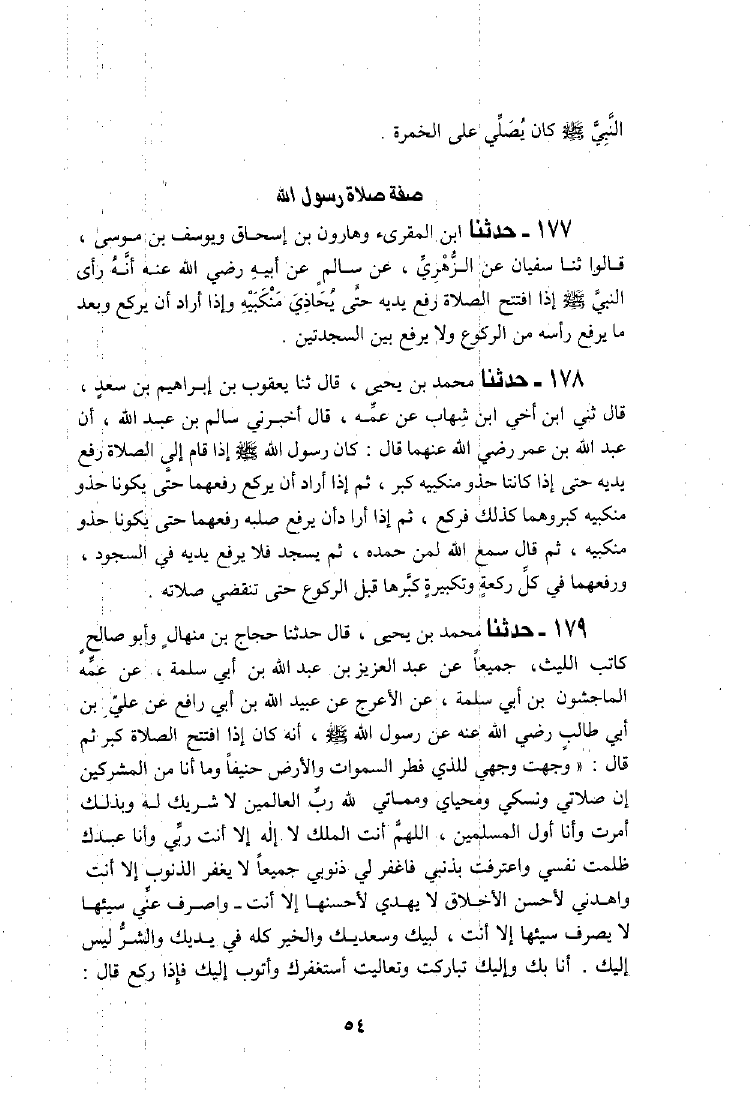 النَّبِيَّ ﷺ كان يُصَلِّي على الخمرة .
صفة صلاة رسول الله
١٧٧ - حدثنا ابن المقرىء وهارون بن إسحاق ويوسف بن موسى ،
قالوا ثنا سفيان عن الزُّهْرِيِّ ، عن سالمٍ عن أبيهِ رضي الله عنه أنَّهُ رأى
النبيَّ ﷺ إذا افتتح الصلاة رفع يديه حتَّى يُحَاذِيَ مَنْكَبَيْهِ وإذا أراد أن يركع وبعد
ما يرفع رأسه من الركوع ولا يرفع بين السجدتين .
١٧٨ - حدثنا محمد بن يحيى ، قال ثنا يعقوب بن إبراهيم بن سعدٍ ،
قال ثني ابن أخي ابن شِهاب عن عمِّه ، قال أخبرني سالم بن عبد الله ، أن
عبد الله بن عمر رضي الله عنهما قال : كان رسول الله ﷺ إذا قام إلى الصلاة رفع
يديه حتى إذا كانتا حذو منكبيه كبر ، ثم إذا أراد أن يركع رفعهما حتَّى يكونا حذو
منكبيه كبروهما كذلك فركع ، ثم إذا أرا دأن يرفع صلبه رفعهما حتى يكونا حذو
منكبيه ، ثم قال سمع الله لمن حمده ، ثم يسجد فلا يرفع يديه في السجود ،
ورفعهما في كلِّ ركعةٍ وتكبيرةٍ كبَّرها قبل الركوع حتى تنقضي صلاته .
١٧٩ - حدثنا محمد بن يحيى ، قال حدثنا حجاج بن منهالٍ وأبو صالحٍ
كاتب الليث، جميعاً عن عبد العزيز بن عبد الله بن أبي سلمة ، عن عمِّه
الماجشون بن أبي سلمة ، عن الأعرج عن عبيد الله بن أبي رافع عن عليِّ بن
أبي طالبٍ رضي الله عنه عن رسول الله ﷺ ، أنه كان إذا افتتح الصلاة كبر ثم
قال : « وجهت وجهي للذي فطر السموات والأرض حنيفاً وما أنا من المشركين
إن صلاتي ونسكي ومحياي ومماتي لله ربِّ العالمين لا شريك له وبذلك
أمرت وأنا أول المسلمين ، اللهمَّ أنت الملك لا إله إلا أنت ربِّي وأنا عبدك
ظلمت نفسي واعترفت بذنبي فاغفر لي ذنوبي جميعاً لا يغفر الذنوب إلا أنت
واهدني لأحسن الأخلاق لا يهدي لأحسنها إلا أنت - واصرف عنِّي سيئها
لا يصرف سيئها إلا أنت ، لبيك وسعديك والخير كله في يديك والشرُّ ليس
إليك . أنا بك وإليك تباركت وتعاليت أستغفرك وأتوب إليك فإذا ركع قال :
٥٤